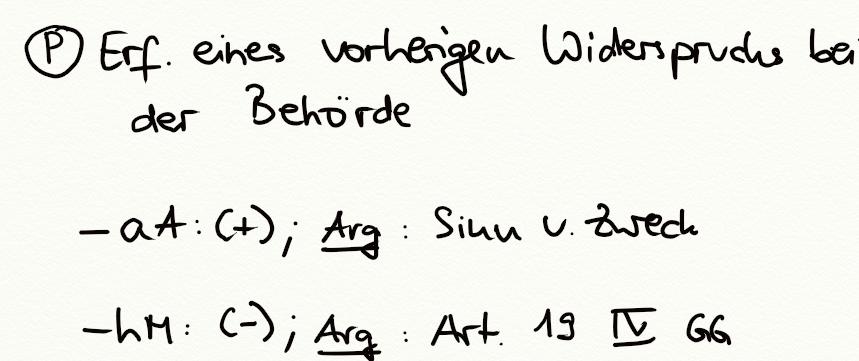 Ⓟ Erf. eines vorherigen Widerspruchs bei
der Behörde
- aA: (+); Arg: Sinn u. Zweck
- hM: (-); Arg: Art. 19 IV GG